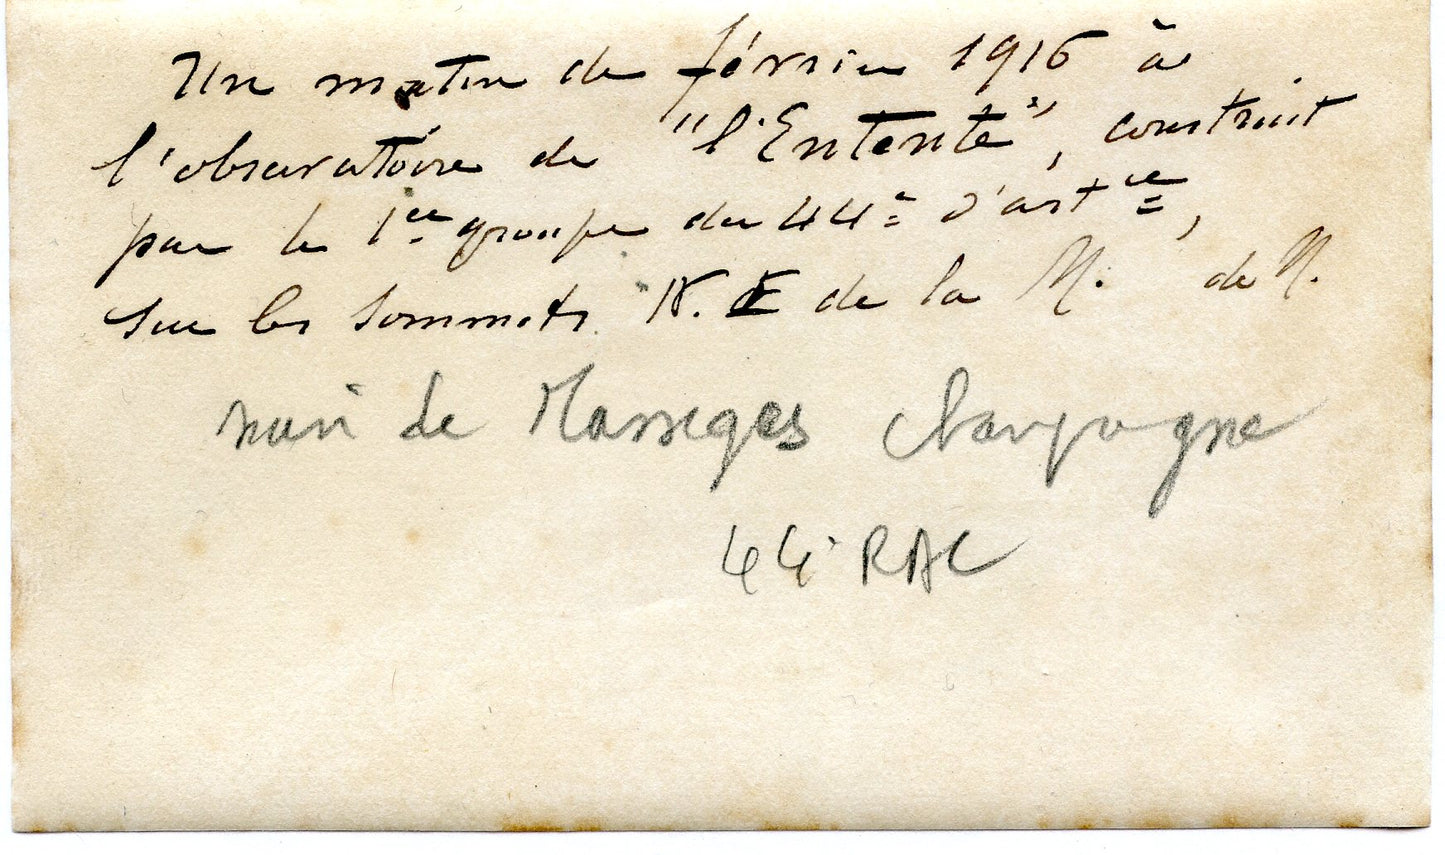 Un matin de février 1916 à
l'observatoire de "l'Entente", construit
par le 1er groupe du 44e d'artie,
sur les sommets N. E de la M. de M.
main de Massiges Champagne
44e RAC